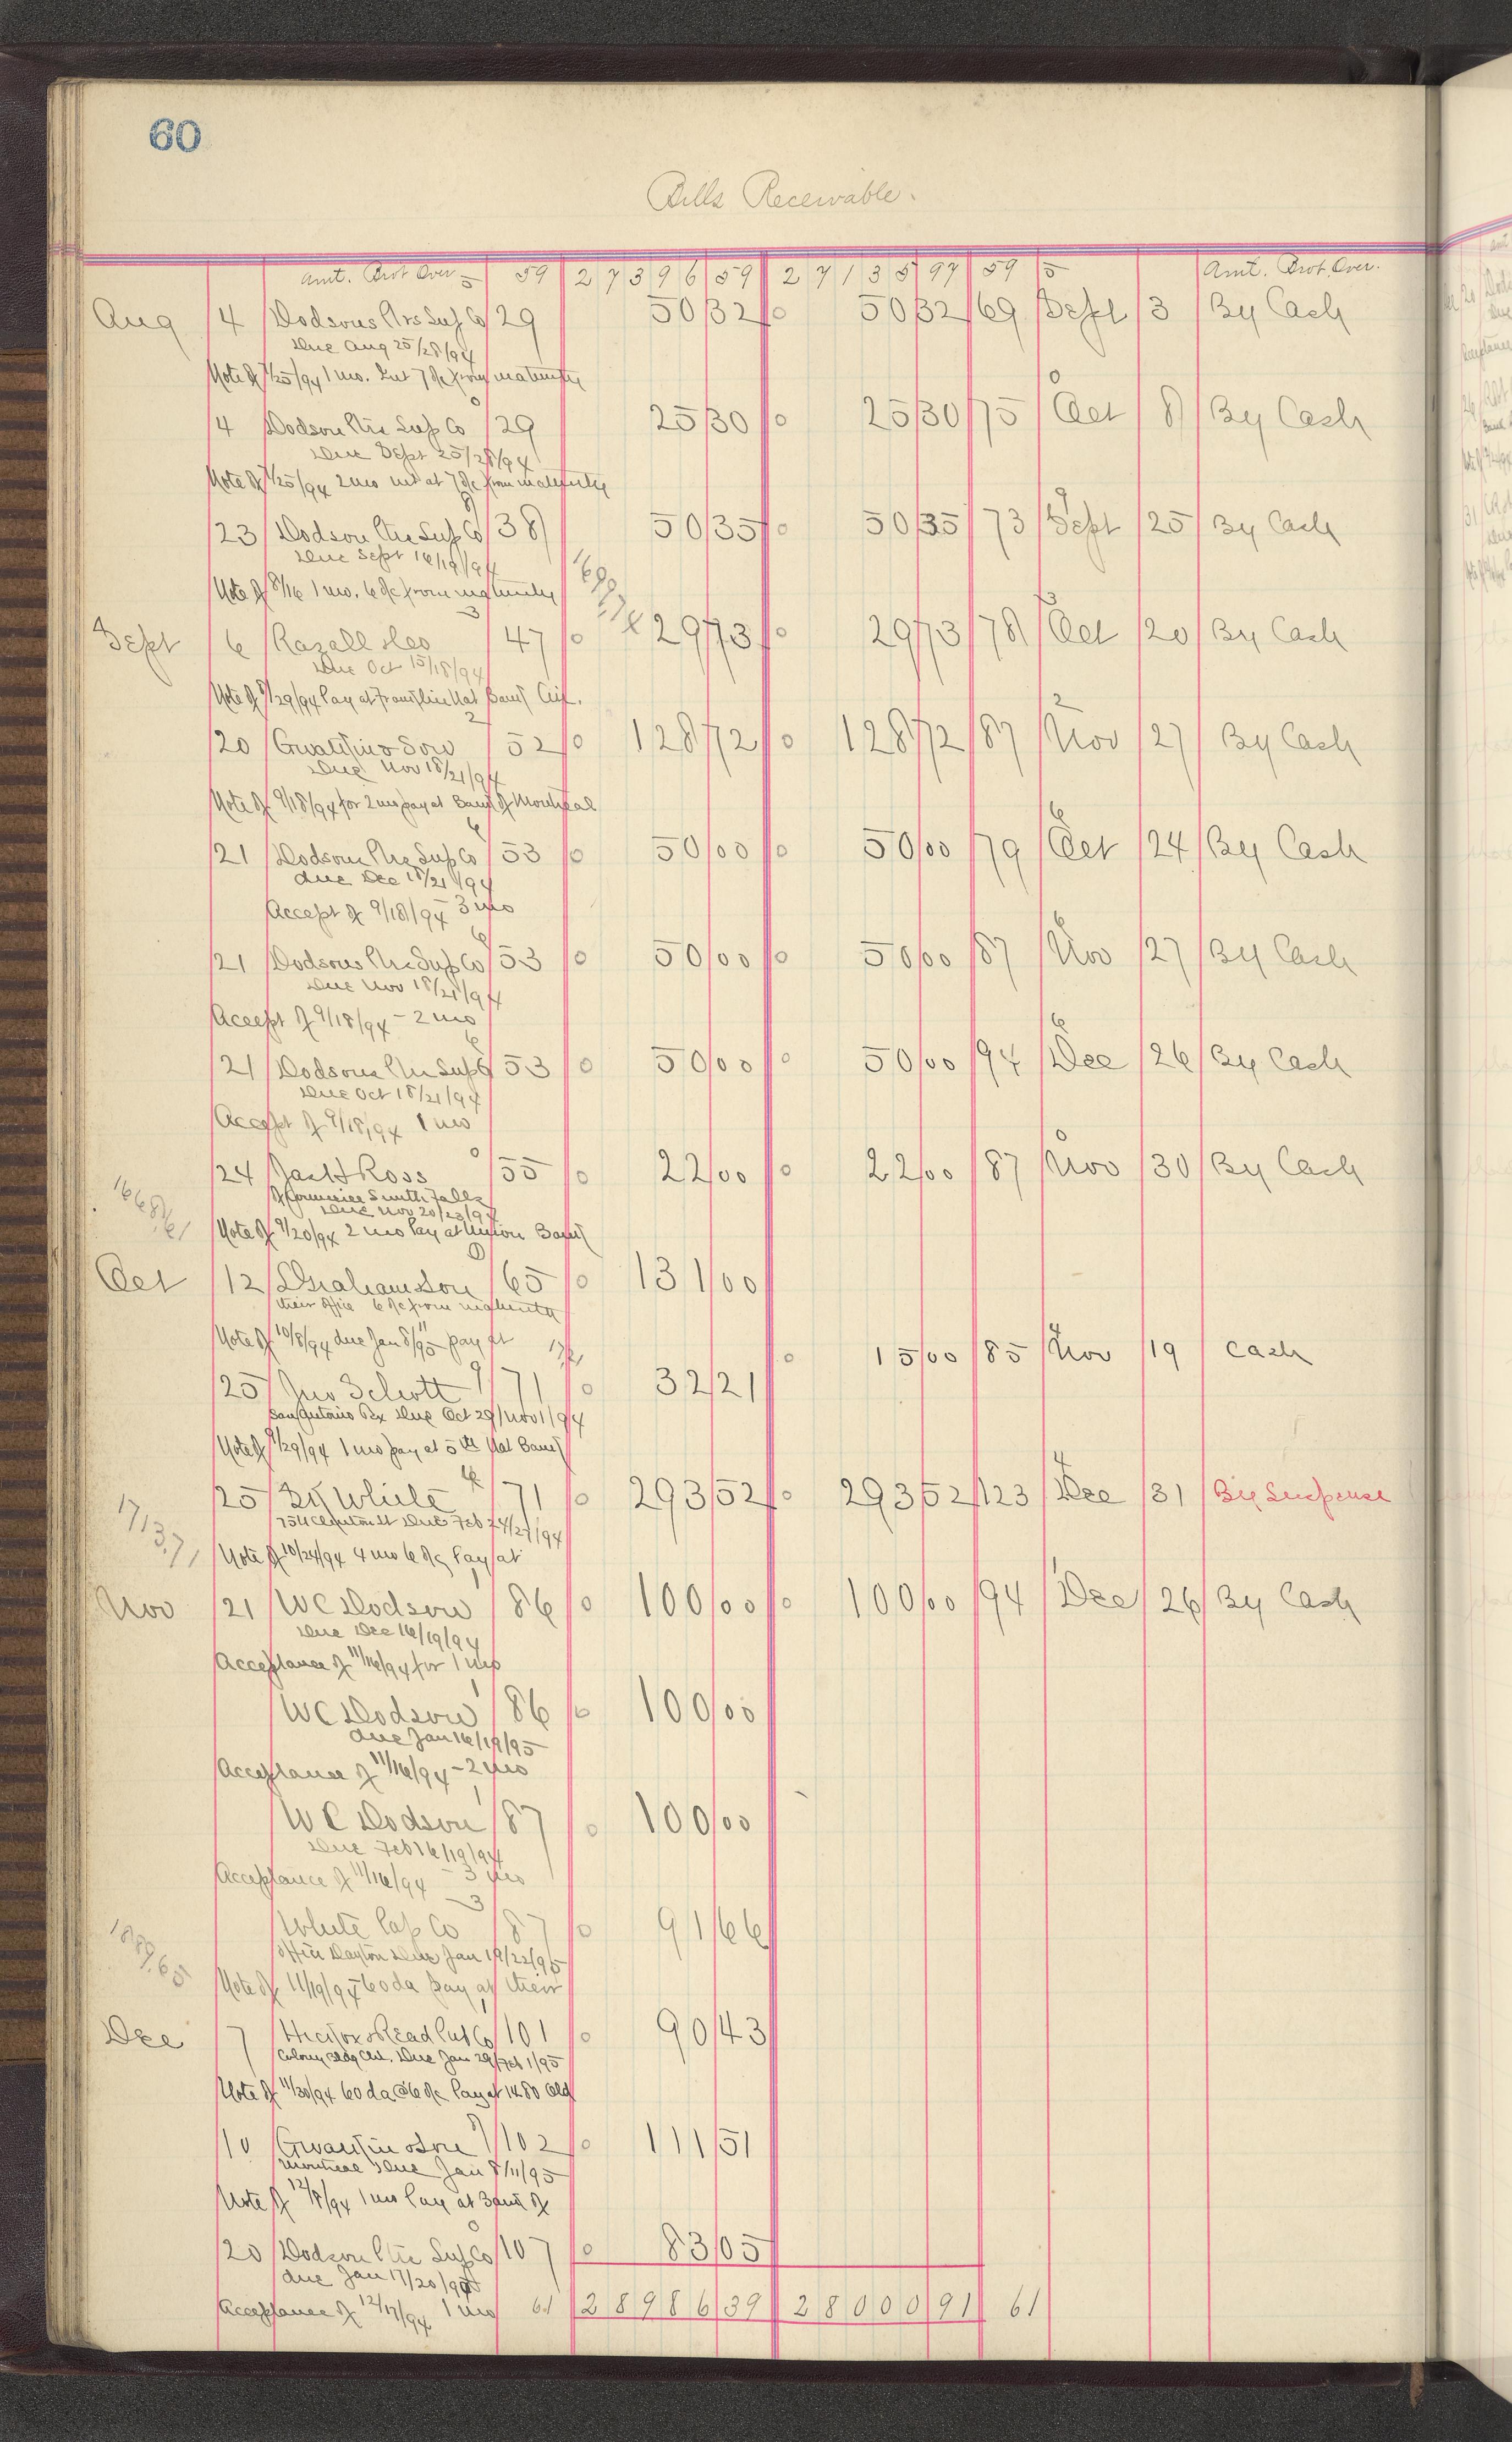 60
Bills Receivable.
Amt. Brot Over 59 27396 59 27135 97 59 Amt. Brot Over.
Aug 4 Dodsons Prs Sup Co 29 50 32 0 50 32 69 Sept 3 By Cash
Due Aug 25/28/94
Note of 7/25/94 1 mo. Int 7 % from maturity
4 Dodson Ptrs Sup Co 29 25 30 0 25 30 75 Oct 8 By Cash
Due Sept 25/28/94
Note of 7/25/94 2 mo int at 7 % from maturity
23 Dodson Ptrs Sup Co 38 50 35 0 50 35 73 Sept 25 By Cash
Due Sept 16/19/94
Note of 8/16 1 mo. 6 % from maturity
Sept 6 47 0 29 73 0 29 73 78 Oct 20 By Cash
Due Oct 15/18/94
Note of 29/94 Pay at Franklin Nat Bank Cin.
20 52 0 128 72 0 128 72 87 Nov 27 By Cash
Due Nov 18/21/94
Note of 9/18/94 for 2 mo pay at Bank of Montreal
21 Dodson Ptrs Sup Co 53 0 50 00 0 50 00 79 Oct 24 By Cash
due Dec 18/21/94
Accept of 9/18/94 3 mo
21 Dodsons Ptrs Sup Co 53 0 50 00 0 50 00 87 Nov 27 By Cash
Due Nov 18/21/94
Accept of 9/18/94 - 2 mo
21 Dodsons Ptrs Sup Co 53 0 50 00 0 50 00 94 Dec 26 By Cash
Due Oct 18/21/94
Accept of 9/18/94 1 mo
24 Ross 55 0 22 00 0 22 00 87 Nov 30 By Cash
of Commerce Smith Falls
Due Nov 20/23/94
Note of 9/20/94 2 mo Pay at Union Bank
Oct 12 Graham & Son 65 0 131 00
their office 6 % from maturity
Note of 10/8/94 due Jan 8/11/95 pay at
0 15 00 85 Nov 19 Cash
25 Jno Schott 71 0 32 21
San Antonio Tex Due Oct 29/Nov 1/94
Note of 9/29/94 1 mo pay at 5th Nat Bank
25 White 71 0 293 52 0 293 52 123 Dec 31 By Suspense
Due Feb 24/27/94
Note of 10/24/94 4 mo 6 % Pay at
Nov 21 W C Dodson 86 0 100 00 0 100 00 94 Dec 26 By Cash
Due Dec 16/19/94
Acceptance of 11/16/94 for 1 mo
W C Dodson 86 0 100 00
due Jan 16/19/95
Acceptance of 11/16/94 - 2 mo
W C Dodson 87 0 100 00
Due Feb 16/19/94
Acceptance of 11/16/94 - 3 mo
White Cap Co 87 0 91 66
office Dayton Due Jan 19/22/95
Note of 11/19/94 60 da pay at their
Dec 7 101 0 90 43
Colony Bldg Chi. Due Jan 29/Feb 1/95
Note of 11/30/94 60 da @ 6 % Pay at 1480 Old
10 102 0 111 51
Montreal Due Jan 8/11/95
Note of 12/8/94 1 mo Pay at Bank of
20 Dodson Ptrs Sup Co 107 0 83 05
due Jan 17/20/95
Acceptance of 12/17/94 1 mo 61 28986 39 28000 91 61